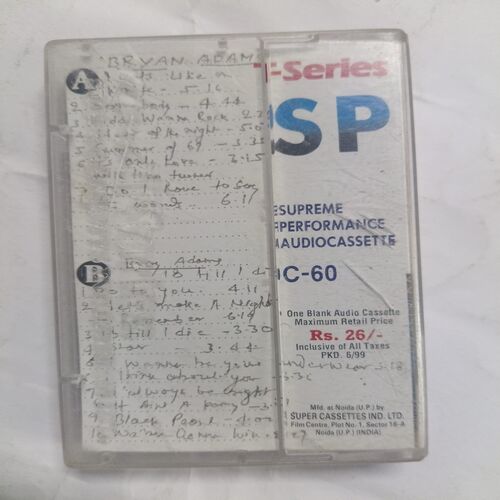 BRYAN ADAMS
A
5.16
2 Somebody - 4.44
3 Kids Wanna Rock 2.3
4 Heat of the night - 5.0
5 Summer of 69 - 3.35
6 Its only Love - 3:15
with Tina turner
7 Do I have to Say
the words - 6.11
B
Bryan Adams
18 till I die
1 Do to you 4.11
2 Let's make A Night
to Remember 6.19
3 18 till I die - 3.30
4 Star 3.44
5 Wanna be your underwear 3.18
6 I think about you 3.3
7 I'll always be right
8 It Ain't a party - 3.
9 Black Pearl 4.00
10 Gonna
T-Series
SP
SUPREME
PERFORMANCE
AUDIOCASSETTE
C-60
One Blank Audio Cassette
Maximum Retail Price
Rs. 26/-
Inclusive of All Taxes
PKD. 6/99
Mfd. at Noida (U.P.) by
SUPER CASSETTES IND. LTD.
Film Centre, Plot No. 1, Sector 16-A
Noida (U.P.) (INDIA)